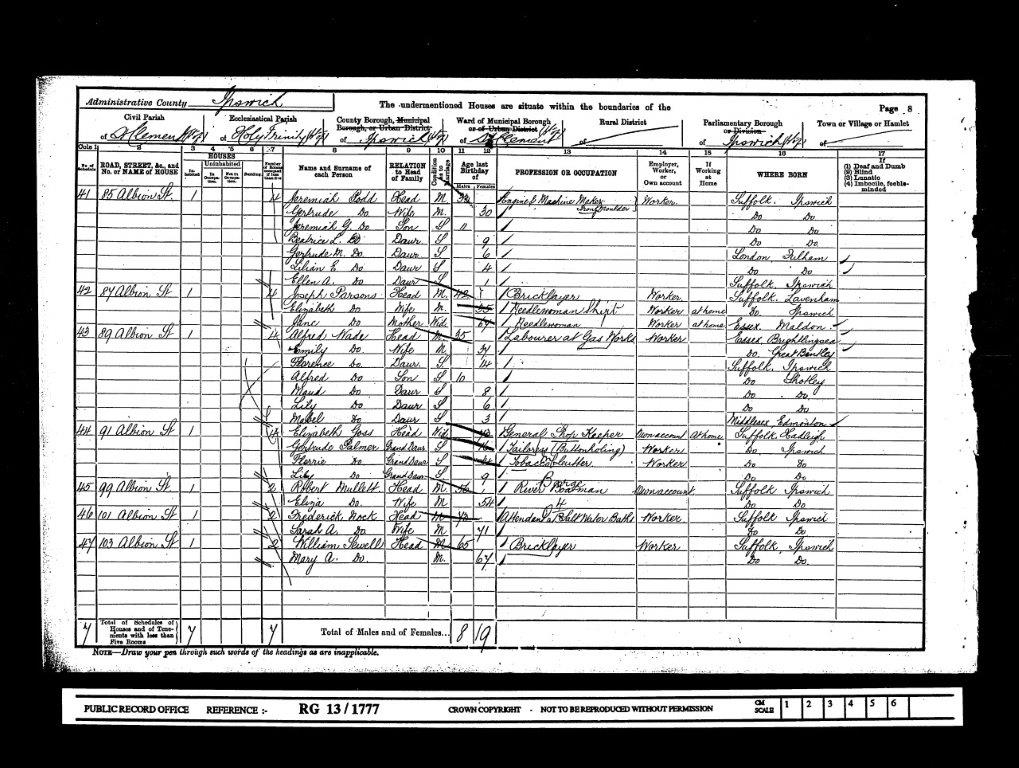 Administrative County Ipswich
The undermentioned Houses are situate within the boundaries of the
Page 8
Civil Parish
Ecclesiastical Parish
County Borough, Municipal Borough, or Urban District
Ward of Municipal Borough or of Urban District
Rural District
Parliamentary Borough or Division
Town or Village or Hamlet
of St Clement
of Holy Trinity
of Ipswich
of St Clement
of
of Ipswich
of
Cols 1 2 3 4 5 6 7 8 9 10 11 12 13 14 15 16 17
No. of Schedule
ROAD, STREET, &c., and No. or NAME of HOUSE
HOUSES
Inhabited
Uninhabited
In Occupation
Not in Occupation
Building
Name and Surname of each Person
RELATION to Head of Family
Condition as to Marriage
Age last Birthday of
Males
Females
PROFESSION OR OCCUPATION
Employer, Worker, or Own account
If Working at Home
WHERE BORN
If (1) Deaf and Dumb (2) Blind (3) Lunatic (4) Imbecile, feeble-minded
41 85 Albion St. 1 4 Jeremiah Podd Head M Engine & Machine Maker Iron Moulder Worker Suffolk Ipswich
Gertrude Do Wife M. 30 Do Do
Jeremiah G. Do Son S 11 Do Do
Beatrice L. Do Daur S 9 Do Do
Gertrude M. Do Daur S 6 London, Fulham
Lilian E. Do Daur S 4 Do Do
Ellen A. Do Daur S 1 Suffolk Ipswich
42 87 Albion St. 1 4 Joseph Parsons Head M. 42 Bricklayer Worker Suffolk, Lavenham
Elizabeth Do Wife M. 35 Needlewoman Shirt Worker at home Do Ipswich
Jane Do Mother Wid 67 Needlewoman Worker at home Essex Maldon
43 89 Albion St. 1 4 Alfred Wade Head M 35 Labourer at Gas Works Worker Essex, Brightlingsea
Emily Do Wife M 37 Do Great Bentley
Florence Do Daur S 14 Suffolk, Ipswich
Alfred Do Son S 10 Do Shotley
Maud Do Daur S 8 Do Do
Lily Do Daur S 6 Do Do
Mabel Do Daur S 3 Middlesex Edmonton
44 91 Albion St 1 Elizabeth Goss Head Wid General Shop Keeper Own account At home Suffolk Hadleigh
Gertrude Palmer Grand Daur S Tailoress (Buttonholing) Worker Do Ipswich
Florrie Do Grand Daur S Tobacco Worker Do Do
Lily Do Grand Daur S 9 Do Do
45 99 Albion St 1 Robert Mullett Head M 56 River Barge Boatman Own account Suffolk Ipswich
Eliza Do Wife M 54 Do Do
46 101 Albion St 1 Frederick Nock Head M 43 Attendant Salt Water Baths Worker Suffolk Ipswich
Sarah A. Do Wife M 41 Do Do
47 103 Albion St 1 William Sewell Head M 65 Bricklayer Worker Suffolk, Ipswich
Mary A. Do M. 67 Do Do
7 Total of Schedules of Houses and of Tenements with less than Five Rooms 7 7 Total of Males and of Females... 8 19
NOTE—Draw your pen through such words of the headings as are inapplicable.
PUBLIC RECORD OFFICE REFERENCE :- RG 13/1777 CROWN COPYRIGHT - NOT TO BE REPRODUCED WITHOUT PERMISSION CM SCALE 1 2 3 4 5 6